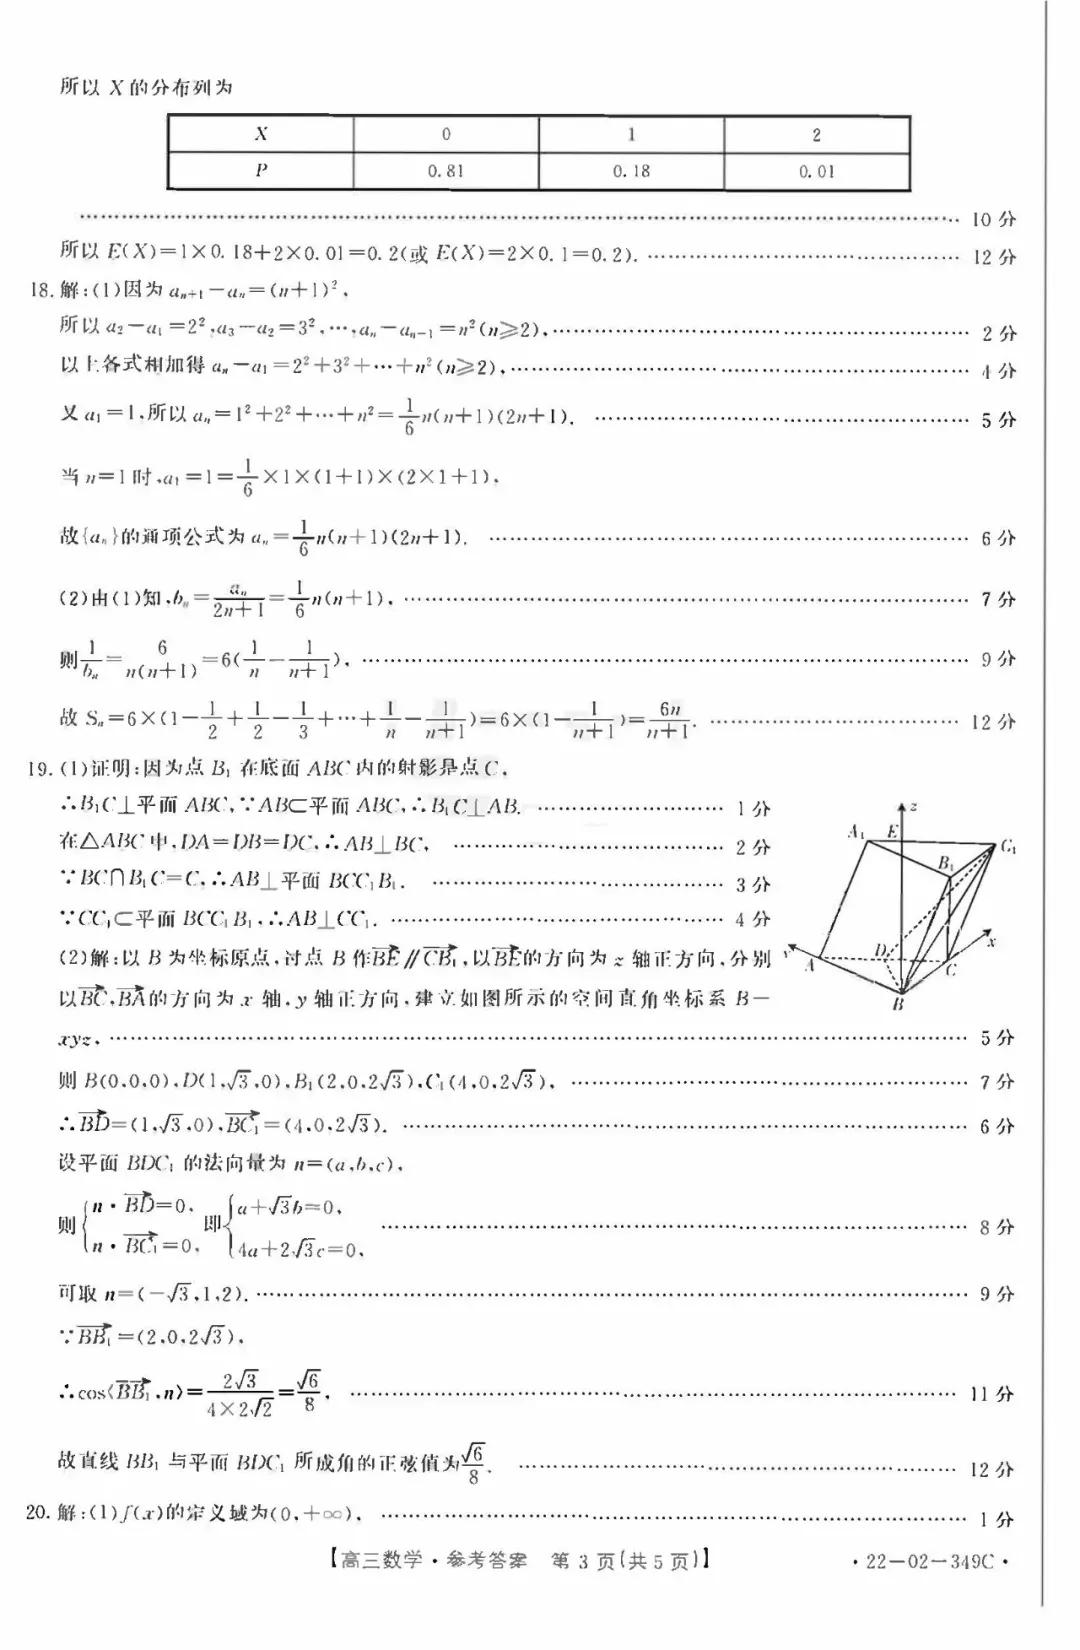 所以 X 的分布列为
X 0 1 2
P 0.81 0.18 0.01
………… 10 分
所以 E(X)=1×0.18+2×0.01=0.2(或 E(X)=2×0.1=0.2). ………… 12 分
18. 解:(1)因为 aₙ₊₁−aₙ=(n+1)²,
所以 a₂−a₁=2²,a₃−a₂=3²,⋯,aₙ−aₙ₋₁=n²(n≥2), ………… 2 分
以上各式相加得 aₙ−a₁=2²+3²+⋯+n²(n≥2), ………… 4 分
又 a₁=1,所以 aₙ=1²+2²+⋯+n²=1/6 n(n+1)(2n+1). ………… 5 分
当 n=1 时,a₁=1=1/6×1×(1+1)×(2×1+1),
故{aₙ}的通项公式为 aₙ=1/6 n(n+1)(2n+1). ………… 6 分
(2)由(1)知,bₙ=aₙ/(2n+1)=1/6 n(n+1), ………… 7 分
则 1/bₙ=6/(n(n+1))=6(1/n−1/(n+1)), ………… 9 分
故 Sₙ=6×(1−1/2+1/2−1/3+⋯+1/n−1/(n+1))=6×(1−1/(n+1))=6n/(n+1). ………… 12 分
19. (1)证明:因为点 B₁ 在底面 ABC 内的射影是点 C,
∴B₁C⊥平面 ABC,∵AB⊂平面 ABC,∴B₁C⊥AB. ………… 1 分
在△ABC 中,DA=DB=DC,∴AB⊥BC, ………… 2 分
∵BC∩B₁C=C,∴AB⊥平面 BCC₁B₁. ………… 3 分
∵CC₁⊂平面 BCC₁B₁,∴AB⊥CC₁. ………… 4 分
z
A₁ E C₁
B₁
y A D C x
B
(2)解:以 B 为坐标原点,过点 B 作BE⃗∥CB₁⃗,以BE⃗的方向为 z 轴正方向,分别
以BC⃗,BA⃗的方向为 x 轴,y 轴正方向,建立如图所示的空间直角坐标系 B−
xyz, ………… 5 分
则 B(0,0,0),D(1,√3,0),B₁(2,0,2√3),C₁(4,0,2√3), ………… 7 分
∴BD⃗=(1,√3,0),BC₁⃗=(4,0,2√3). ………… 6 分
设平面 BDC₁ 的法向量为 n=(a,b,c),
则{n·BD⃗=0, n·BC₁⃗=0, 即{a+√3b=0, 4a+2√3c=0, ………… 8 分
可取 n=(−√3,1,2). ………… 9 分
∵BB₁⃗=(2,0,2√3),
∴cos⟨BB₁⃗,n⟩=2√3/(4×2√2)=√6/8, ………… 11 分
故直线 BB₁ 与平面 BDC₁ 所成角的正弦值为√6/8. ………… 12 分
20. 解:(1)f(x)的定义域为(0,+∞), ………… 1 分
【高三数学·参考答案 第 3 页(共 5 页)】
·22−02−349C·